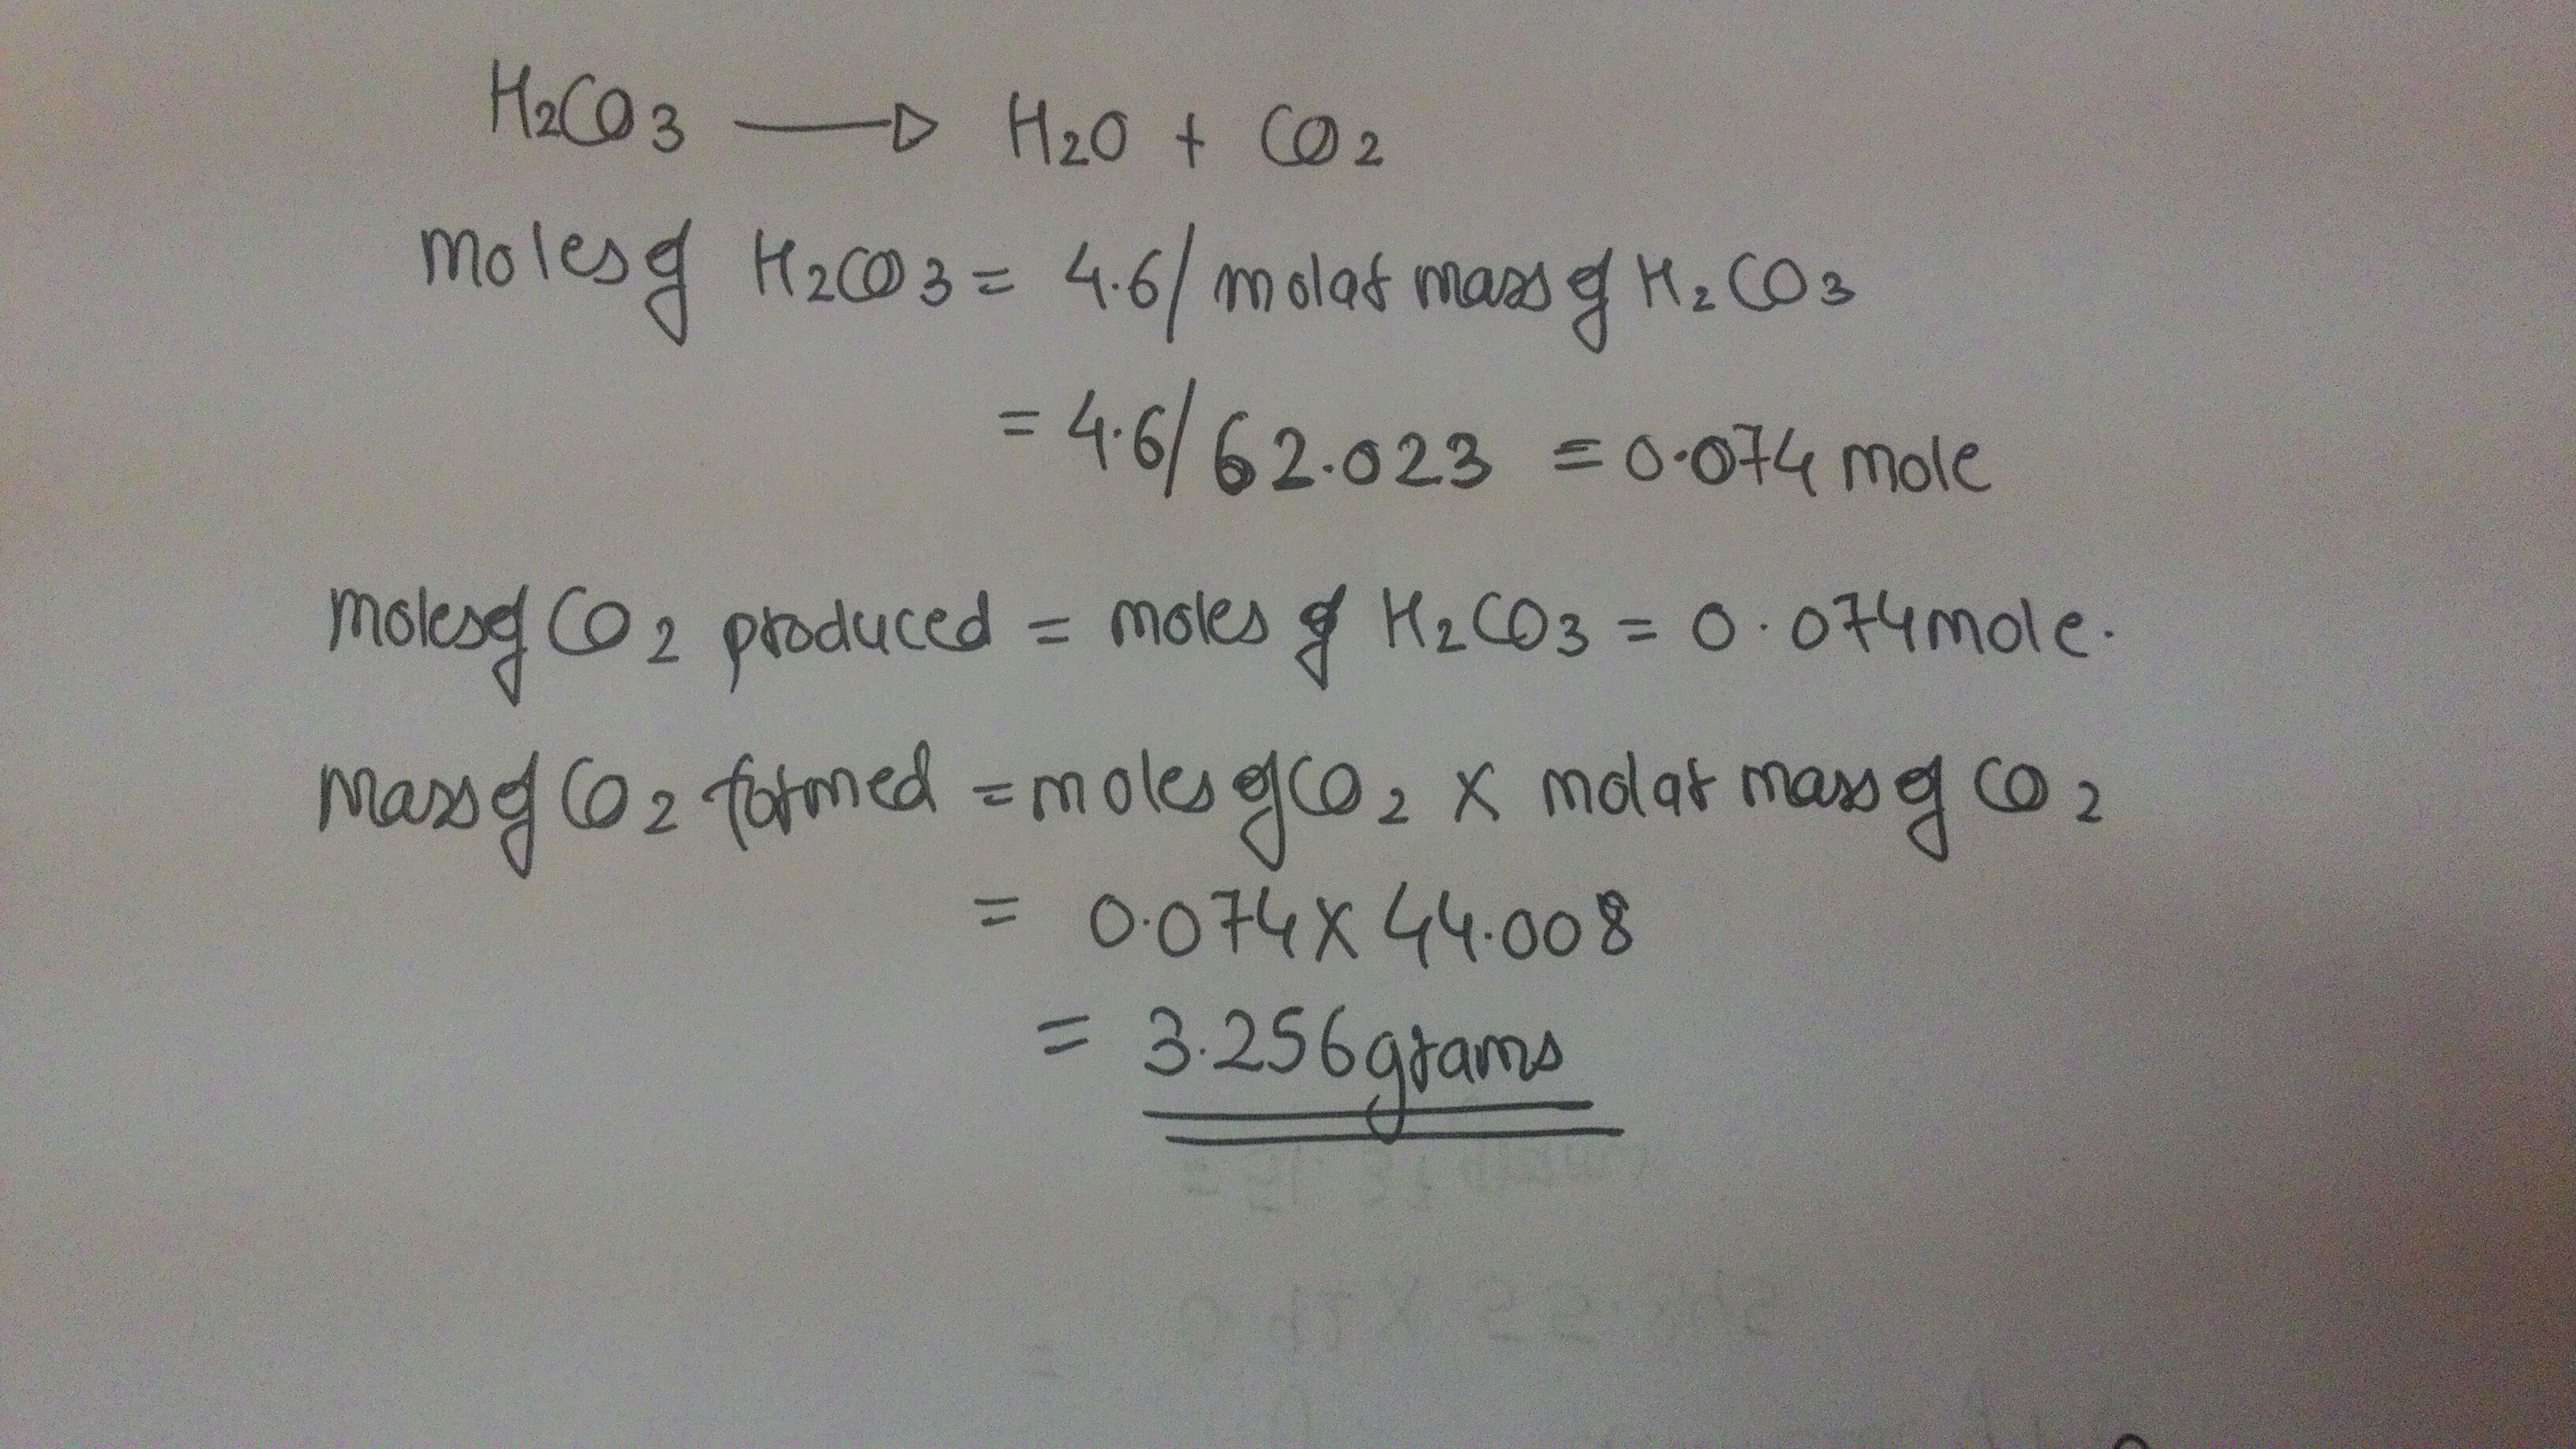 H2CO3 → H2O + CO2
moles of H2CO3 = 4.6/ molar mass of H2CO3
= 4.6/62.023 = 0.074 mole
moles of CO2 produced = moles of H2CO3 = 0.074 mole.
mass of CO2 formed = moles of CO2 X molar mass of CO2
= 0.074 X 44.008
= 3.256 grams